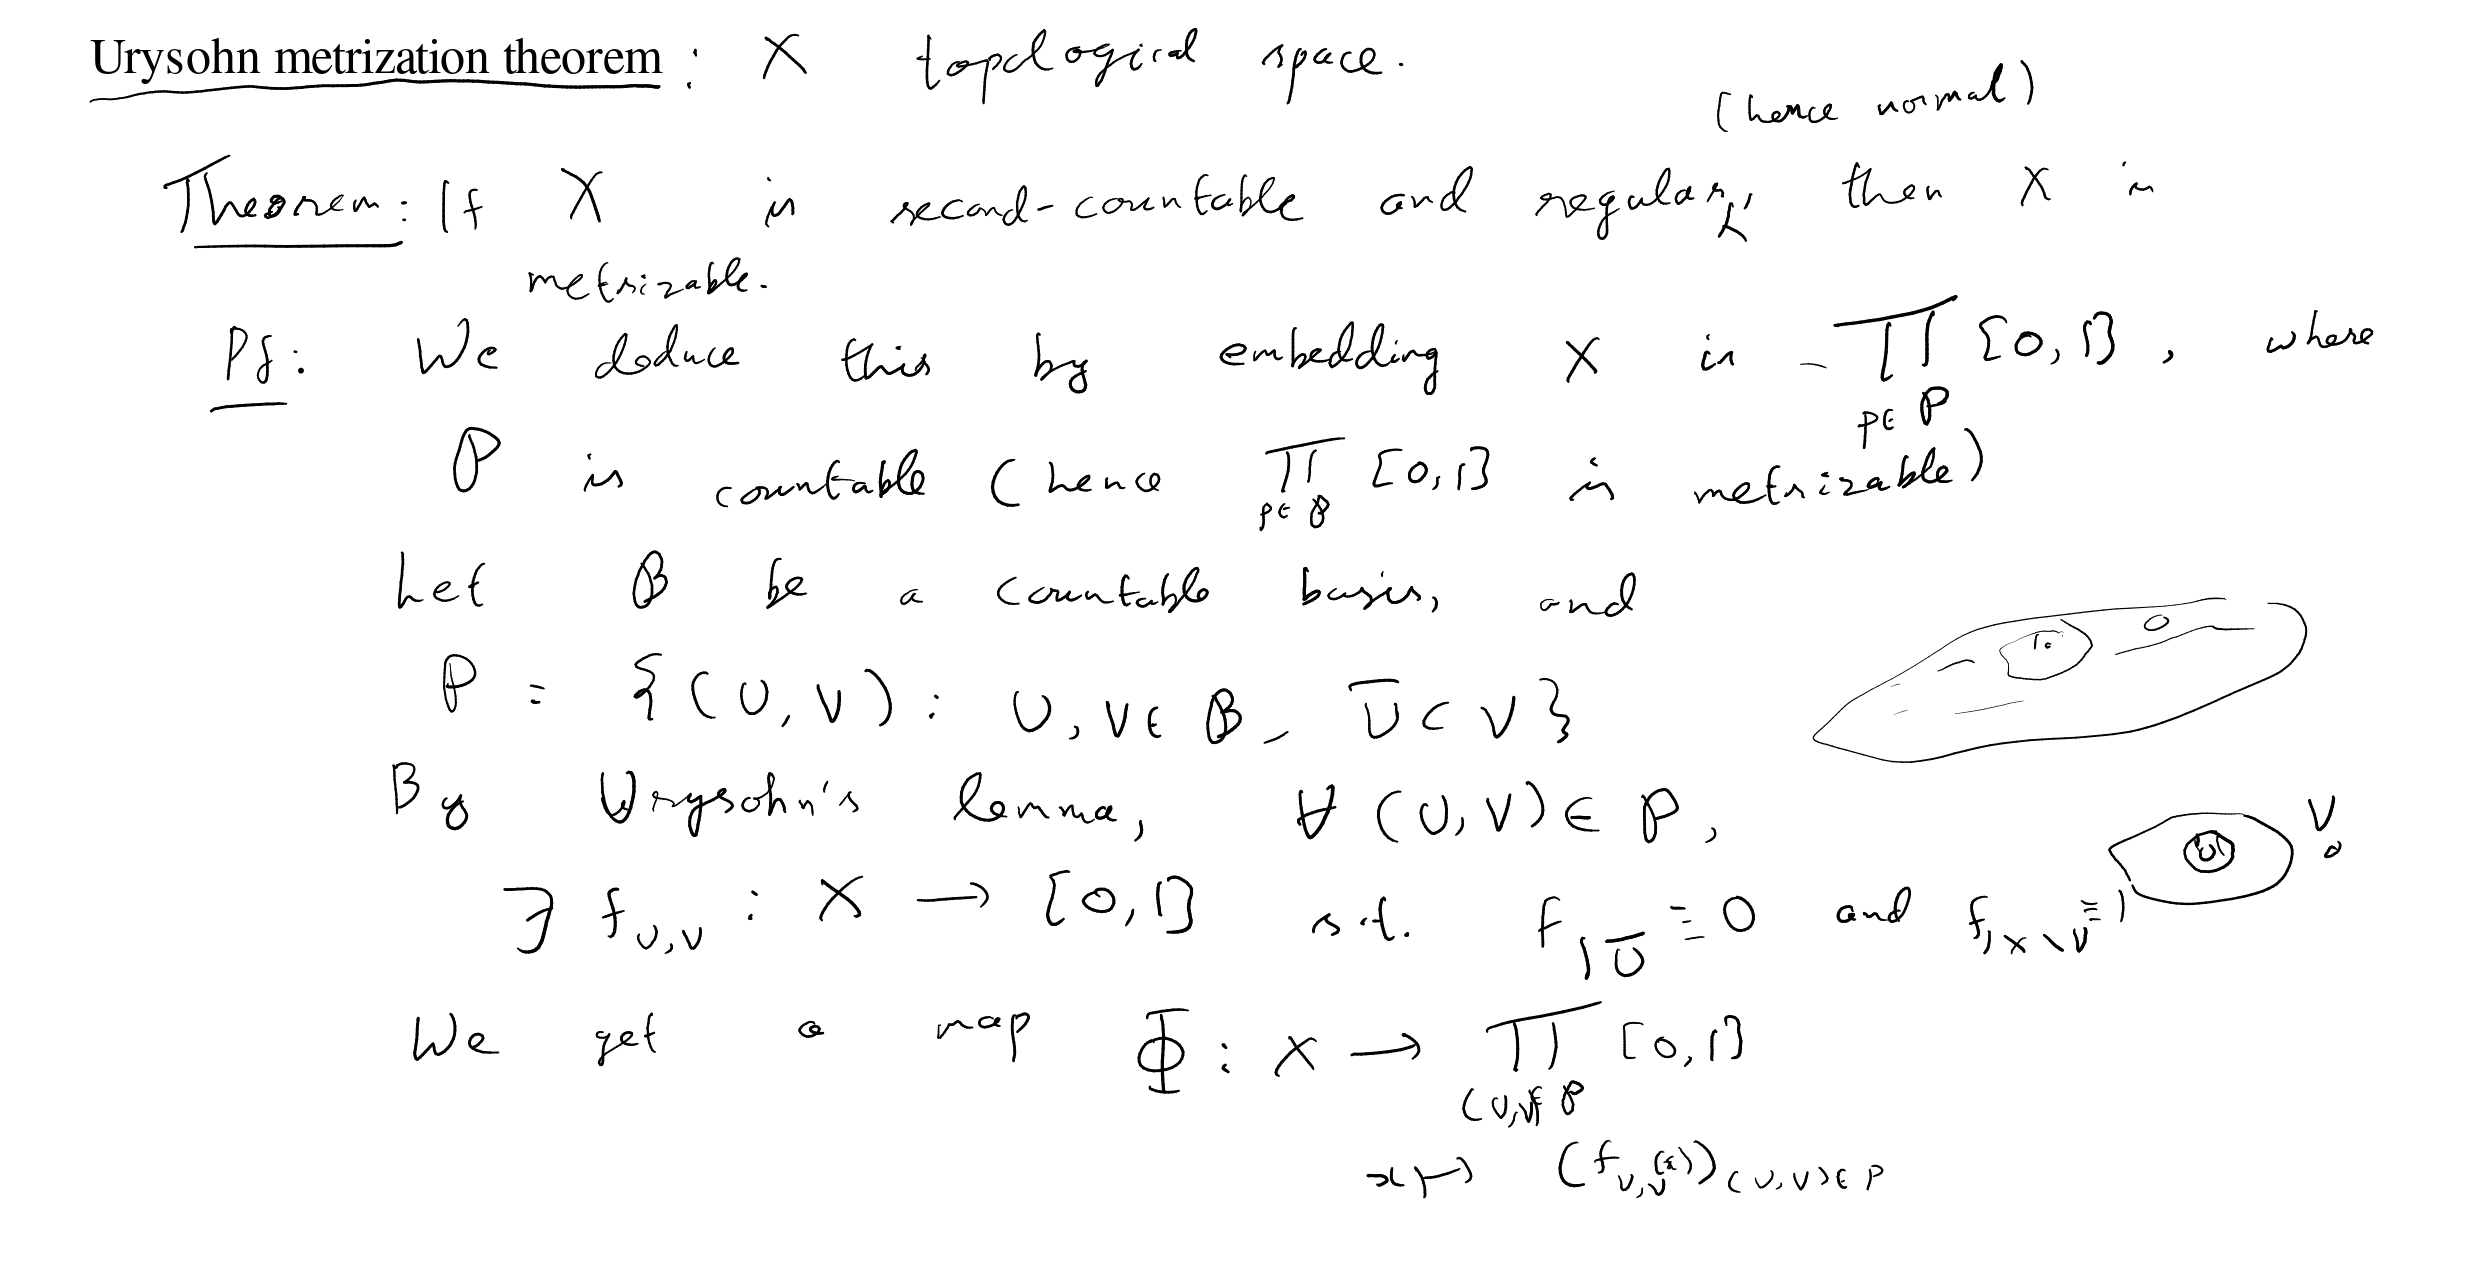 Urysohn metrization theorem : X topological space.
(hence normal)
Theorem: If X is second-countable and regular, then X is
metrizable.
Pf: We deduce this by embedding X in ∏_{p∈P} [0,1], where
P is countable (hence ∏_{p∈P} [0,1] is metrizable)
Let B be a countable basis, and
P = {(U,V) : U, V ∈ B, Ū ⊂ V}
By Urysohn's lemma, ∀ (U,V) ∈ P,
∃ f_{U,V} : X → [0,1] s.t. f_{|Ū} ≡ 0 and f_{|X∖V} ≡ 1
U V
We get a map Φ : X → ∏_{(U,V)∈P} [0,1]
x ↦ (f_{U,V}(x))_{(U,V)∈P}